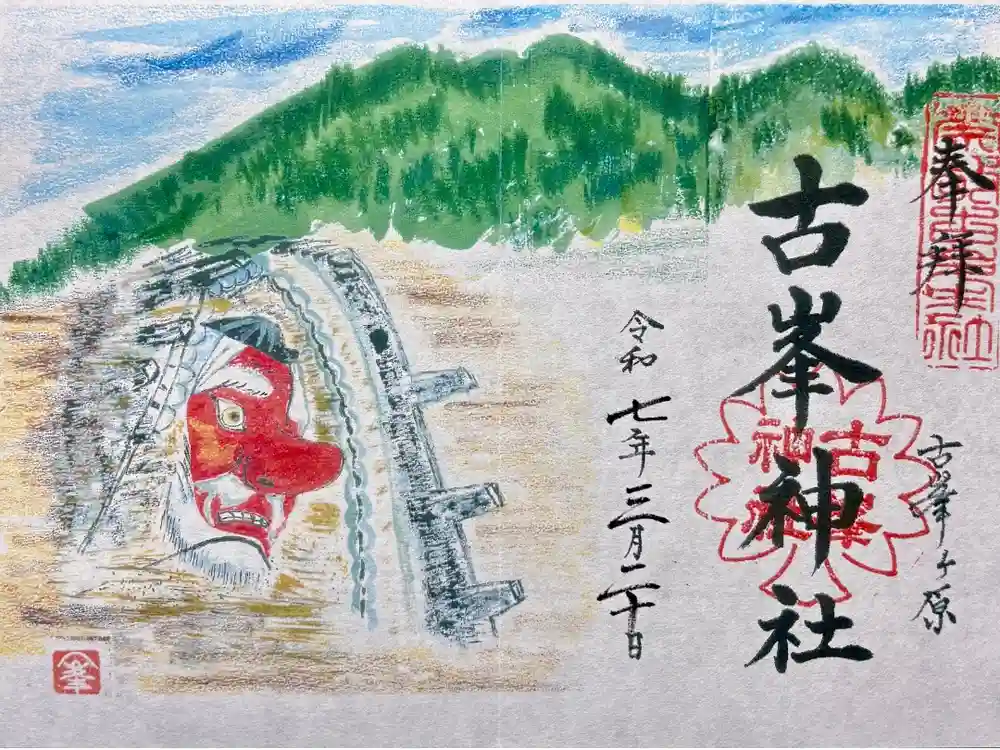 奉拝
古峯ヶ原
古峯神社
古峯神社
令和七年三月二十日
峯